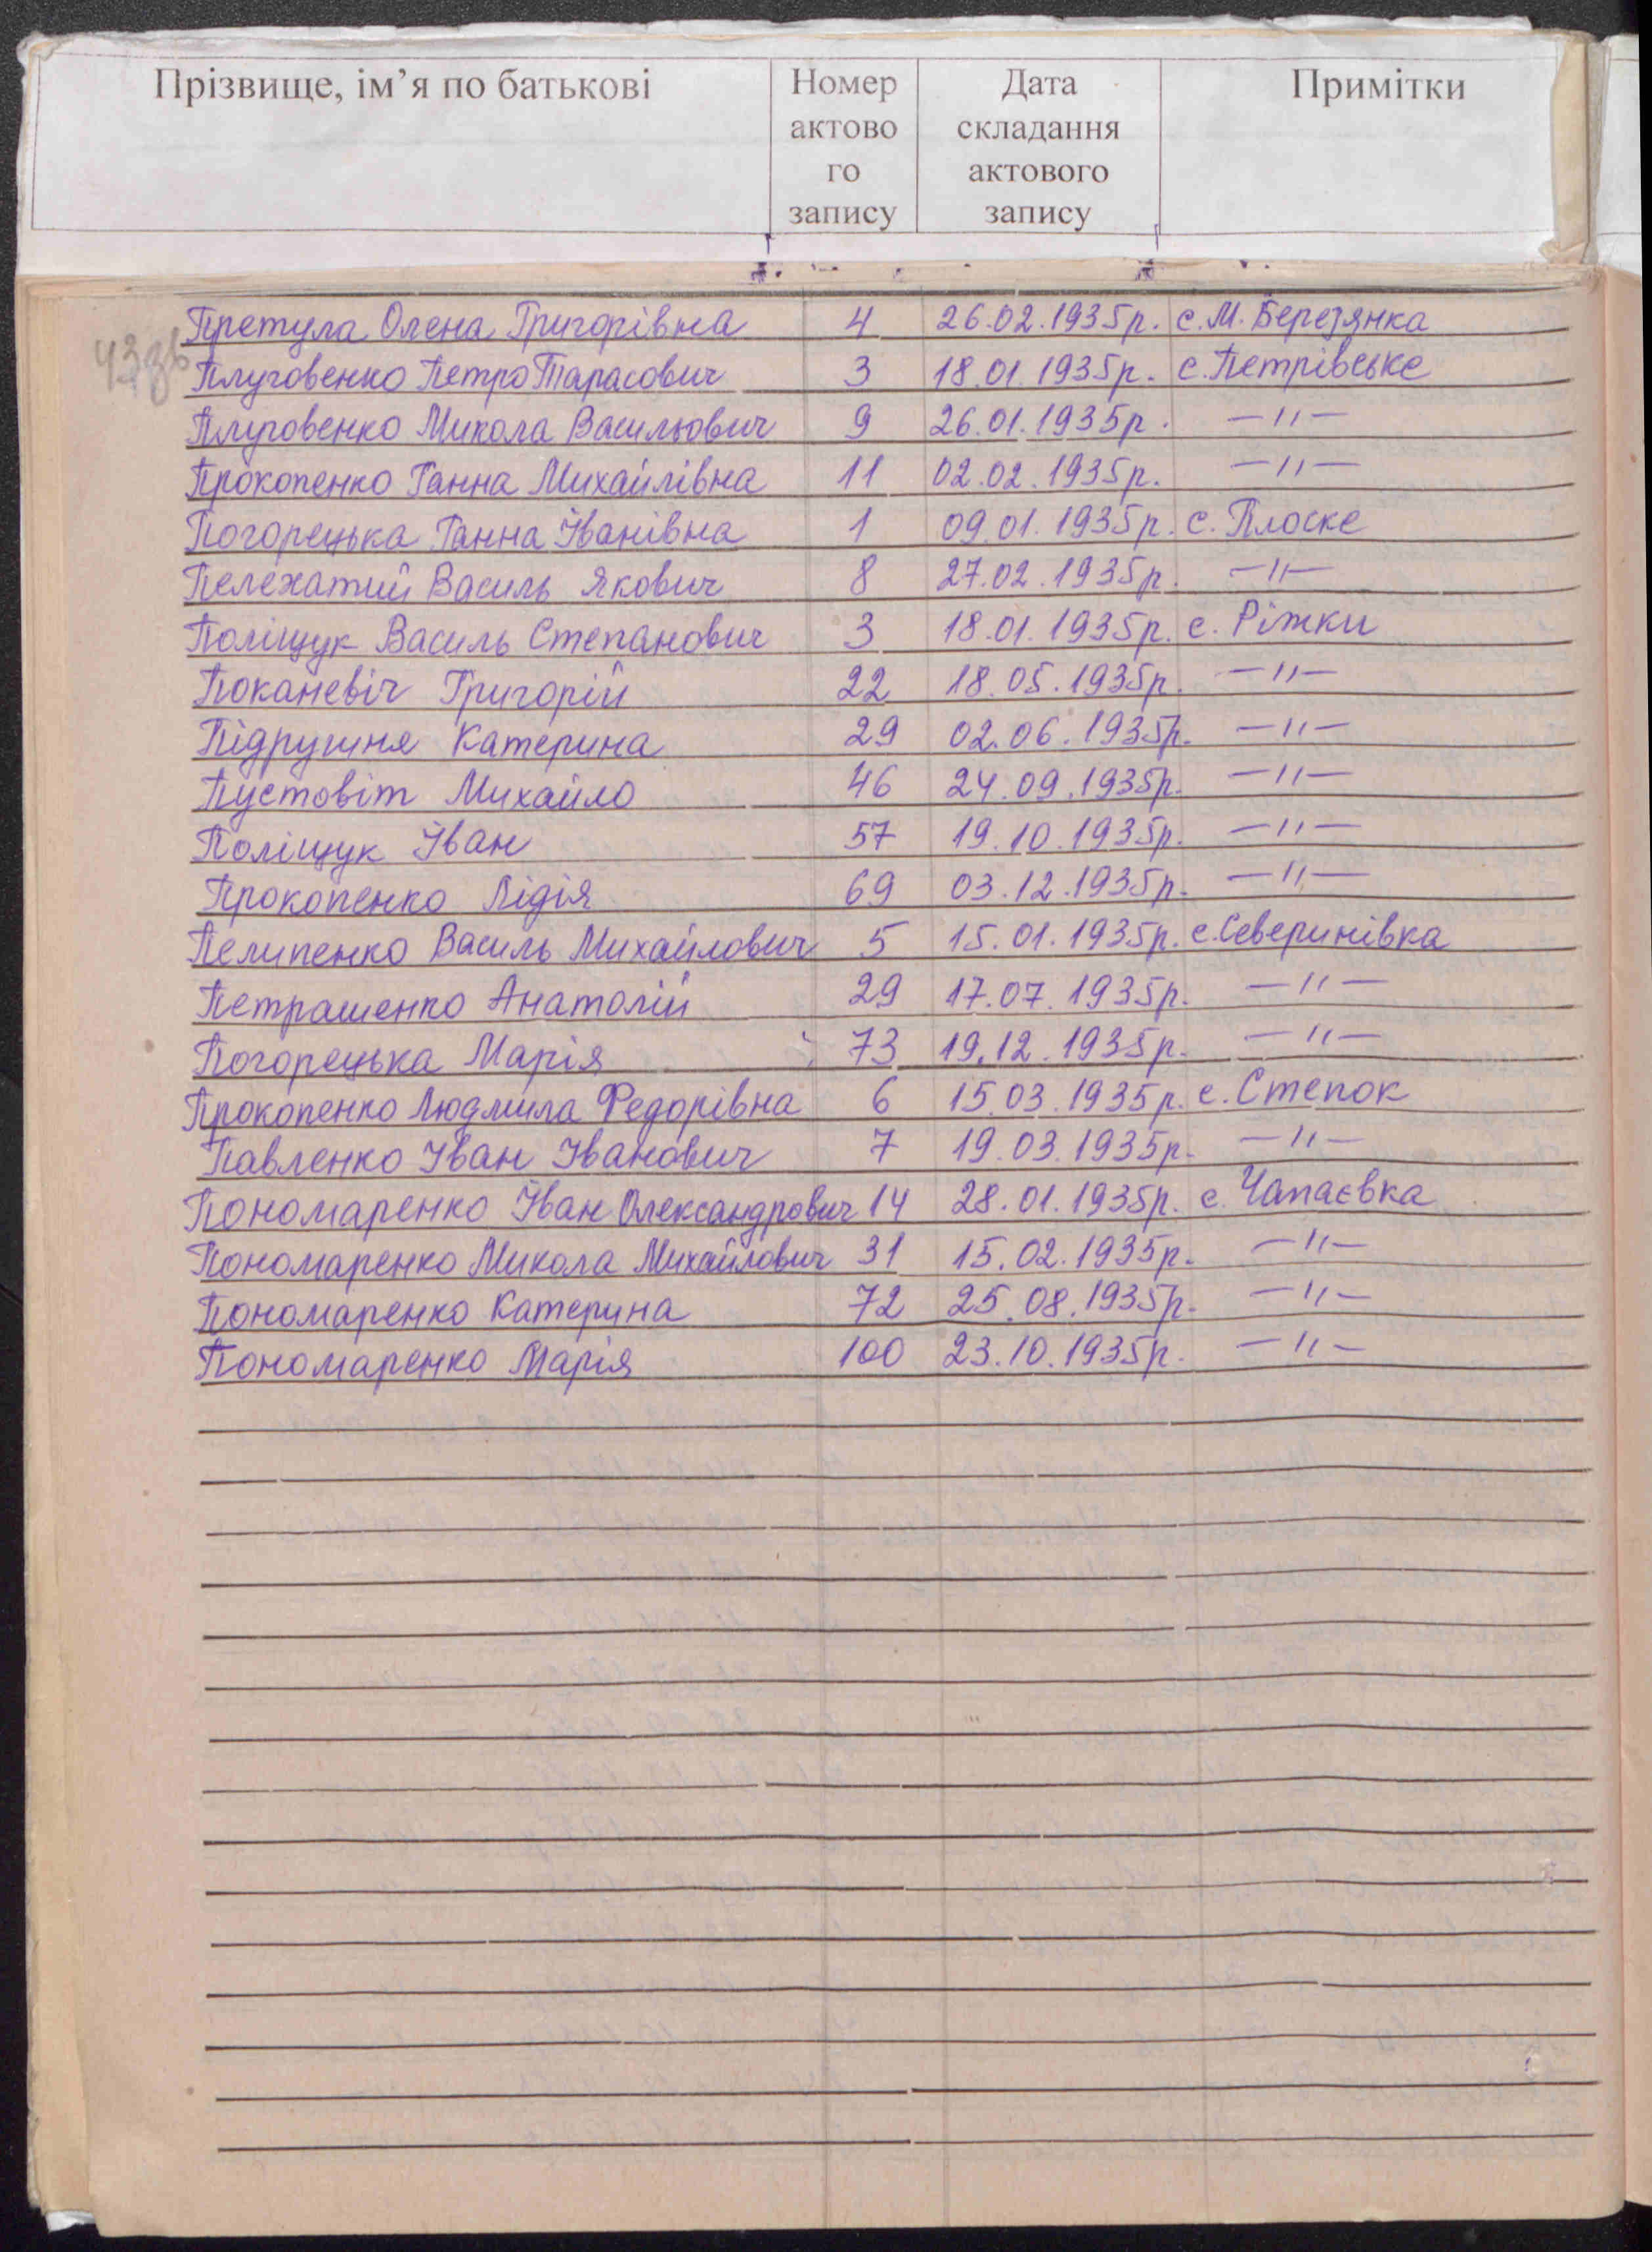 Прізвище, ім’я по батькові Номер актово го запису Дата складання актового запису Примітки
Претула Олена Григорівна 4 26.02.1935р. с. М. Березянка
Плуговенко Петро Тарасович 3 18.01.1935р. с. Петрівське
Плуговенко Микола Васильович 9 26.01.1935р. —〃—
Прокопенко Ганна Михайлівна 11 02.02.1935р. —〃—
Погорецька Ганна Іванівна 1 09.01.1935р. с. Плоске
Пелехатий Василь Якович 8 27.02.1935р. —〃—
Поліщук Василь Степанович 3 18.01.1935р. с. Ріжки
Поканевіч Григорій 22 18.05.1935р. —〃—
Підручня Катерина 29 02.06.1935р. —〃—
Пустовіт Михайло 46 24.09.1935р. —〃—
Поліщук Іван 57 19.10.1935р. —〃—
Прокопенко Лідія 69 03.12.1935р. —〃—
Пелипенко Василь Михайлович 5 15.01.1935р. с. Северинівка
Петрашенко Анатолій 29 17.07.1935р. —〃—
Погорецька Марія 73 19.12.1935р. —〃—
Прокопенко Людмила Федорівна 6 15.03.1935р. с. Степок
Павленко Іван Іванович 7 19.03.1935р. —〃—
Пономаренко Іван Олександрович 14 28.01.1935р. с. Чапаєвка
Пономаренко Микола Михайлович 31 15.02.1935р. —〃—
Пономаренко Катерина 72 25.08.1935р. —〃—
Пономаренко Марія 100 23.10.1935р. —〃—